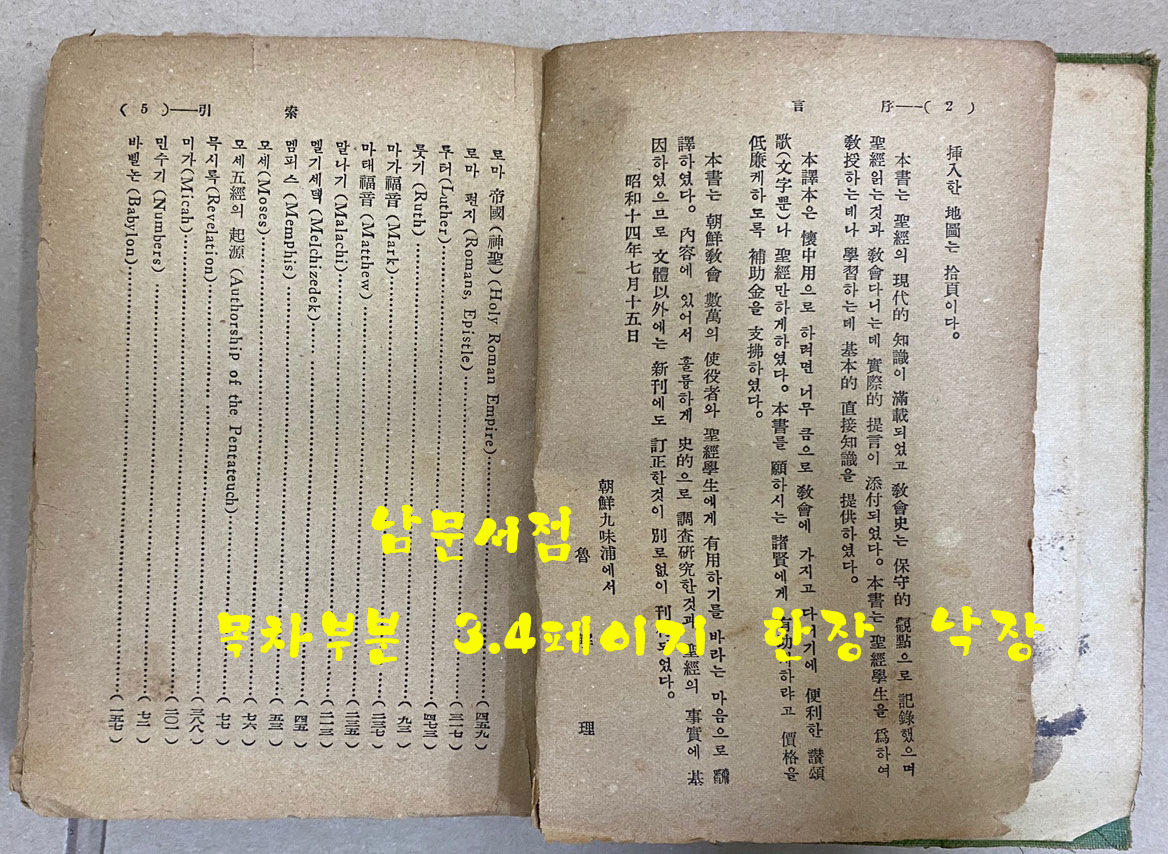 (2)——序言
挿入한 地圖는 拾頁이다。
本書는 聖經의 現代的 知識이 滿載되었고 敎會史는 保守的 觀點으로 記錄했으며
聖經읽는것과 敎會다니는데 實際的 提言이 添付되었다。本書는 聖經學生을 爲하여
敎授하는데나 學習하는데 基本的 直接知識을 提供하였다。
本譯本은 懷中用으로 하려면 너무 큼으로 敎會에 가지고 다니기에 便利한 讃頌
歌(文字뿐)나 聖經만하게하였다。本書를 願하시는 諸賢에게 有功하랴고 價格을
低廉케하도록 補助金을 支拂하였다。
本書는 朝鮮敎會 數萬의 使役者와 聖經學生에게 有用하기를 바라는 마음으로 飜
譯하였다。內容에 있어서 훌륭하게 史的으로 調査硏究한것과 聖經의 事實에 基
因하였으므로 文體以外에는 新刊에도 訂正한것이 別로없이 刊 되었다。
昭和十四年七月十五日
朝鮮九味浦에서
魯 理
索引——(5)
로마 帝國(神聖)(Holy Roman Empire)……(四五九)
로마 편지(Romans, Epistle)……(三一七)
루터(Luther)……(四七三)
룻기 (Ruth)……(九三)
마가福音(Mark)……(二三七)
마태福音(Matthew)……(二三五)
말나기(Malachi)……(二一三)
멜기세덱(Melchizedek)……(四五)
멤피스(Memphis)……(五三)
모세(Moses)……(七六)
모세五經의 起源(Authorship of the Pentateuch)……(七七)
묵시록(Revelation)……(三八八)
미가(Micah)……(二〇一)
민수기(Numbers)……(七二)
바벨논(Babylon)……(一五七)
남문서점
목차부분 3.4페이지 한장 낙장